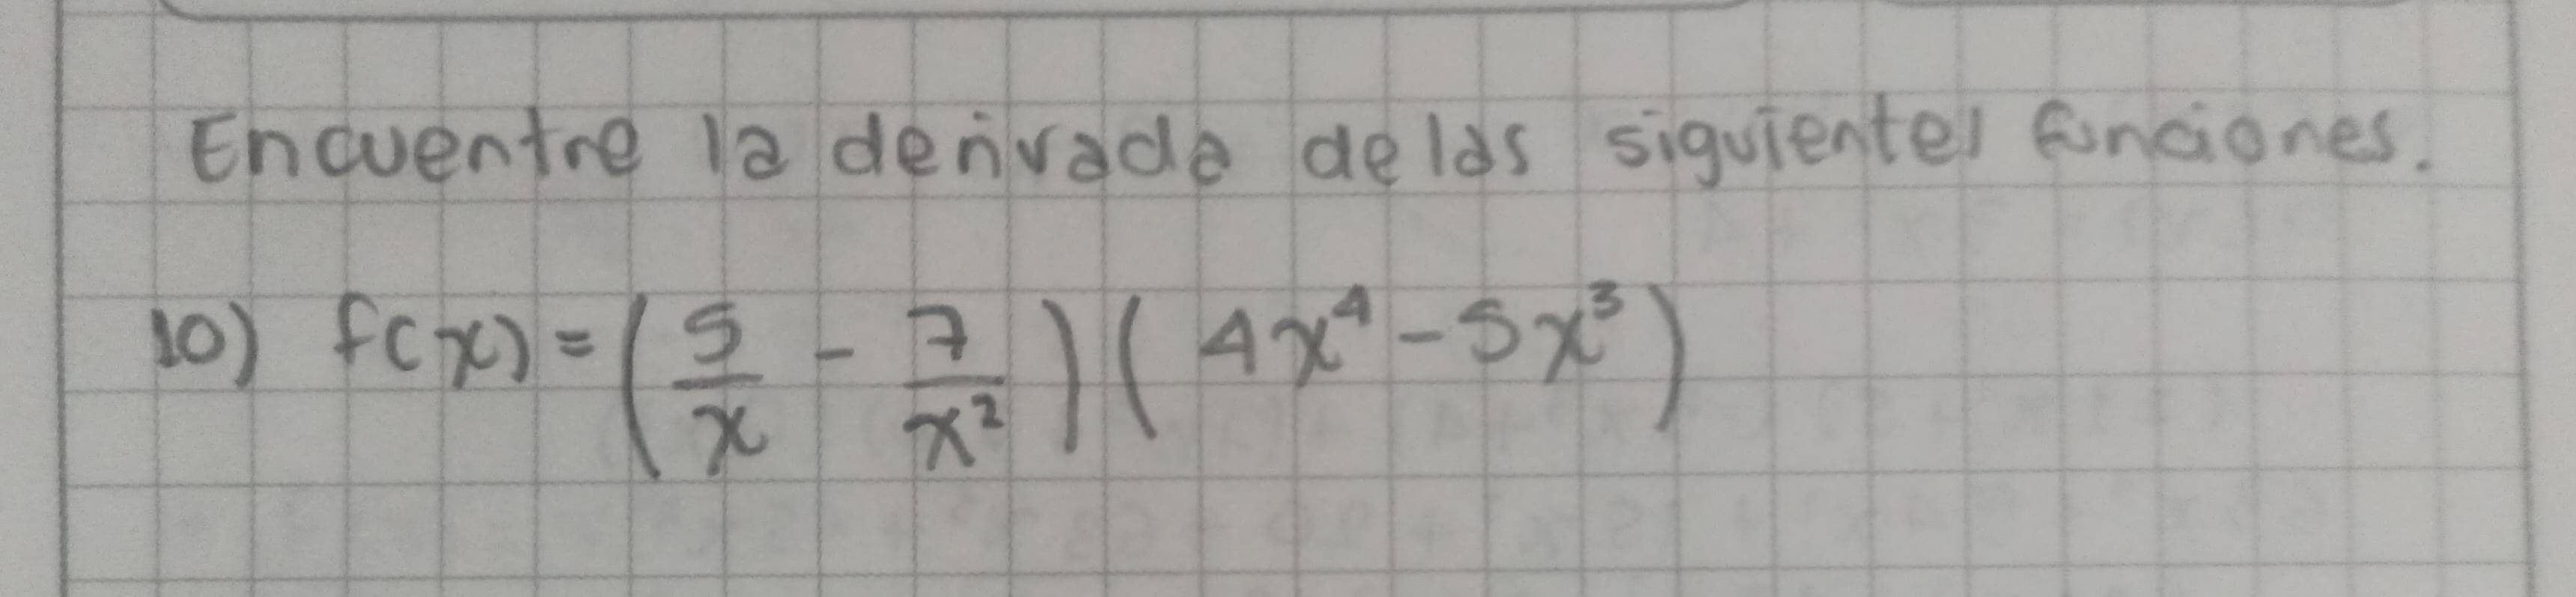 Encuentre la derivada de las siguientes funciones.
10) f(x) = (5/x - 7/x²)(4x⁴ - 5x³)